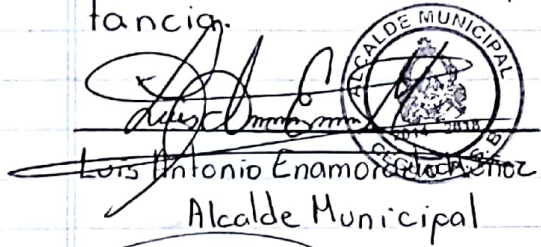 tancia.
ALCALDE MUNICIPAL
2014 2018
Luis Antonio Enamorado
Alcalde Municipal